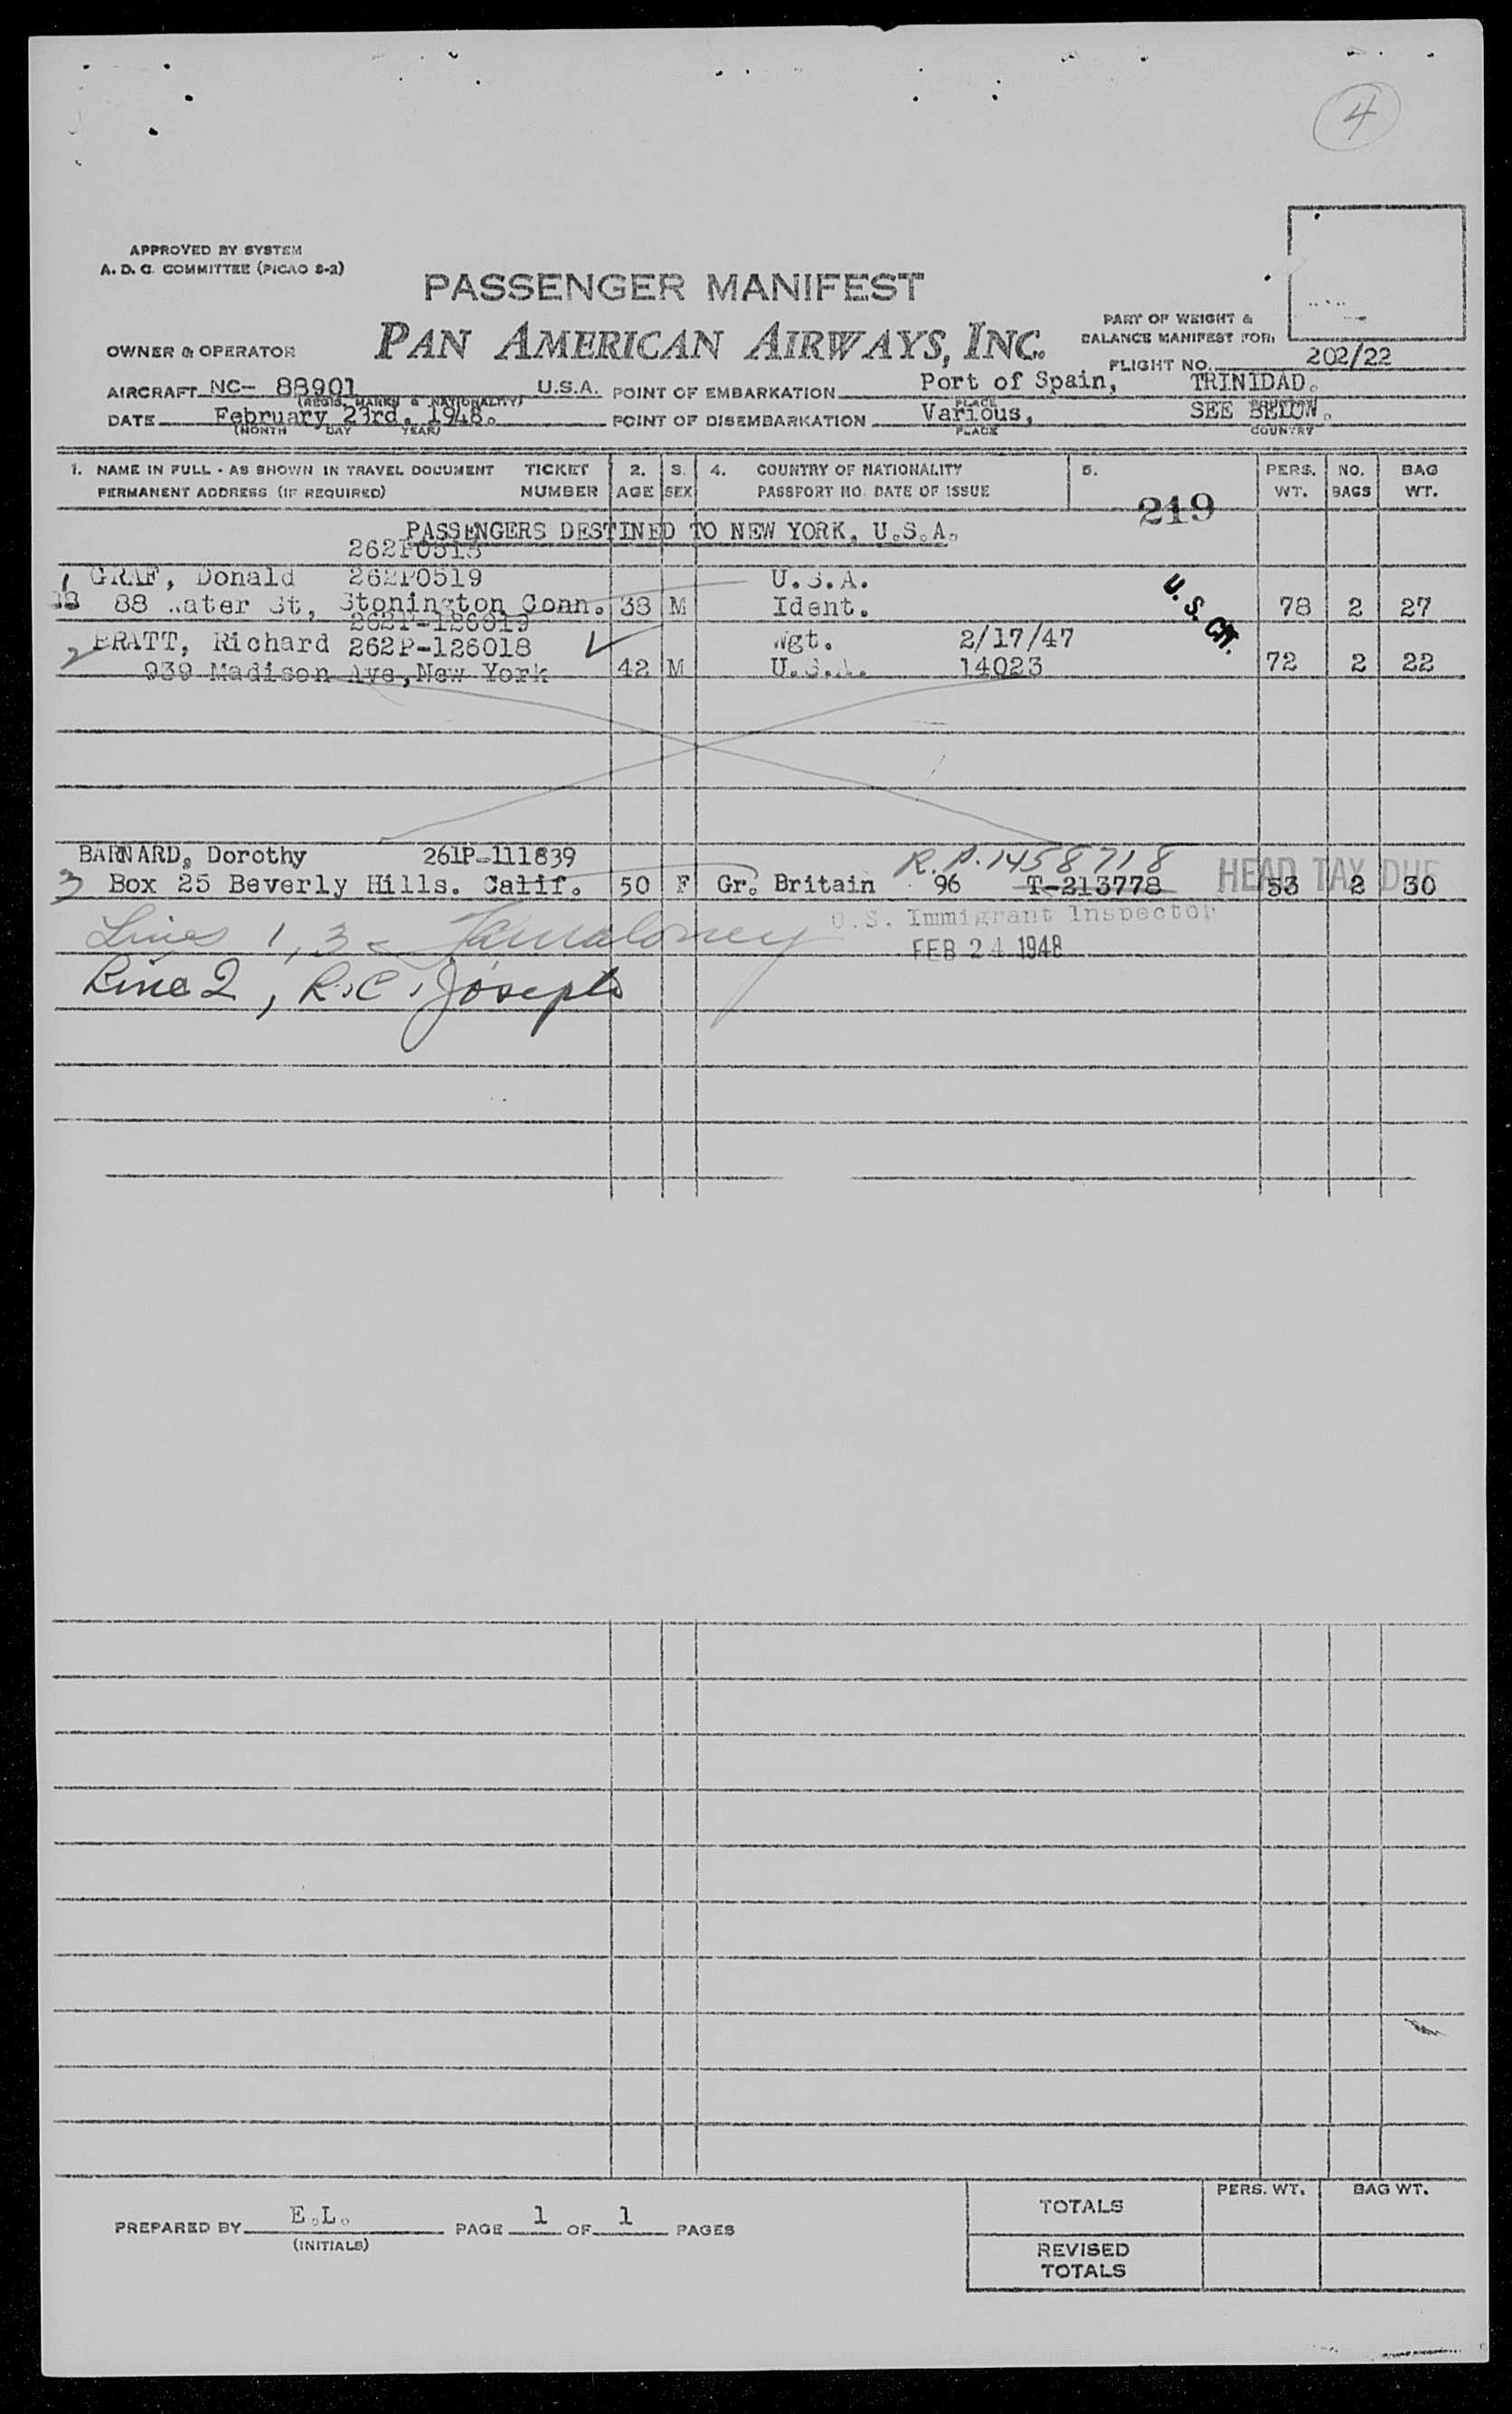 4
APPROVED BY SYSTEM
A. D. C. COMMITTEE (PICAO S-2)
PASSENGER MANIFEST
PAN AMERICAN AIRWAYS, INC.
PART OF WEIGHT &
BALANCE MANIFEST FOR:
OWNER & OPERATOR
FLIGHT NO. 202/22
AIRCRAFT NC- 88901 U.S.A. POINT OF EMBARKATION Port of Spain, TRINIDAD.
(REGIS. MARKS & NATIONALITY) PLACE COUNTRY
DATE February 23rd. 1948. POINT OF DISEMBARKATION Various, SEE BELOW.
(MONTH DAY YEAR) PLACE COUNTRY
1. NAME IN FULL - AS SHOWN IN TRAVEL DOCUMENT TICKET 2. S. 4. COUNTRY OF NATIONALITY 5. PERS. NO. BAG
PERMANENT ADDRESS (IF REQUIRED) NUMBER AGE SEX PASSPORT NO. DATE OF ISSUE WT. BAGS WT.
219
PASSENGERS DESTINED TO NEW YORK, U.S.A.
262P0518
1 GRAF, Donald 262P0519 U.S.A.
88 Water St, Stonington Conn. 38 M Ident. U.S. CIT. 78 2 27
262P-126019
PRATT, Richard 262P-126018 Ngt. 2/17/47
2 939 Madison Ave, New York 42 M U.S.A. 14023 72 2 22
BARNARD, Dorothy 261P-111839 R.P. 1458718
3 Box 25 Beverly Hills. Calif. 50 F Gr. Britain 96 T-213778 HEAD TAX DUE 53 2 30
U.S. Immigrant Inspector
Lines 1, 3
FEB 24 1948
Line 2, R.C. Joseph
PREPARED BY E.L. PAGE 1 OF 1 PAGES
(INITIALS)
PERS. WT. BAG WT.
TOTALS
REVISED
TOTALS